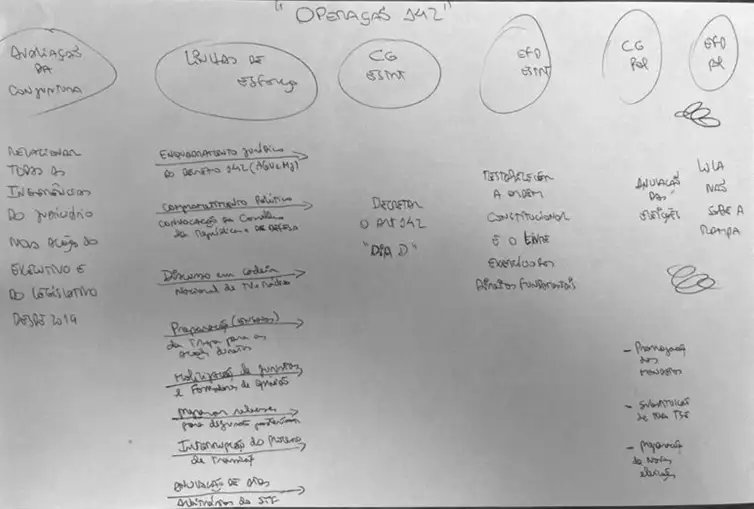 "OPERAÇÃO 142"
AVALIAÇÃO
DA
CONJUNTURA
LINHAS DE
ESFORÇO
CG
ESINT
EFD
ESINT
CG
POL
EFD
POL
RELACIONAR
TODAS AS
INGERÊNCIAS
DO JUDICIÁRIO
NAS AÇÃO DO
EXECUTIVO E
DO LEGISLATIVO
DESDE 2019
ENQUADRAMENTO JURÍDICO
DO DECRETO 142 (AGU e MJ)
COMPROMETIMENTO POLÍTICO
CONVOCAÇÃO DO CONSELHO
DA REPÚBLICA E DE DEFESA
DISCURSO EM CADEIA
NACIONAL DE TV e RÁDIO
PREPARAÇÃO
DA TROPA PARA AS
AÇÕES DIRETAS
MOBILIZAÇÃO DE JURISTAS
E FORMADORES DE OPINIÃO
PREPARAR
PARA
INTERRUPÇÃO DO PROCESSO
DE TRANSIÇÃO
ANULAÇÃO DE ATOS
ARBITRÁRIOS DO STF
DECRETAR
O ART 142
"DIA D"
RESTABELECER
A ORDEM
CONSTITUCIONAL
E O LIVRE
EXERCÍCIO DOS
DIREITOS FUNDAMENTAIS
ANULAÇÃO
DAS
ELEIÇÕES
- PRORROGAÇÃO
DOS
MANDATOS
- SUBSTITUIÇÃO
DE TODO TSE
- PREPARAÇÃO
DE NOVAS
ELEIÇÕES
LULA
NÃO
SOBE A
RAMPA